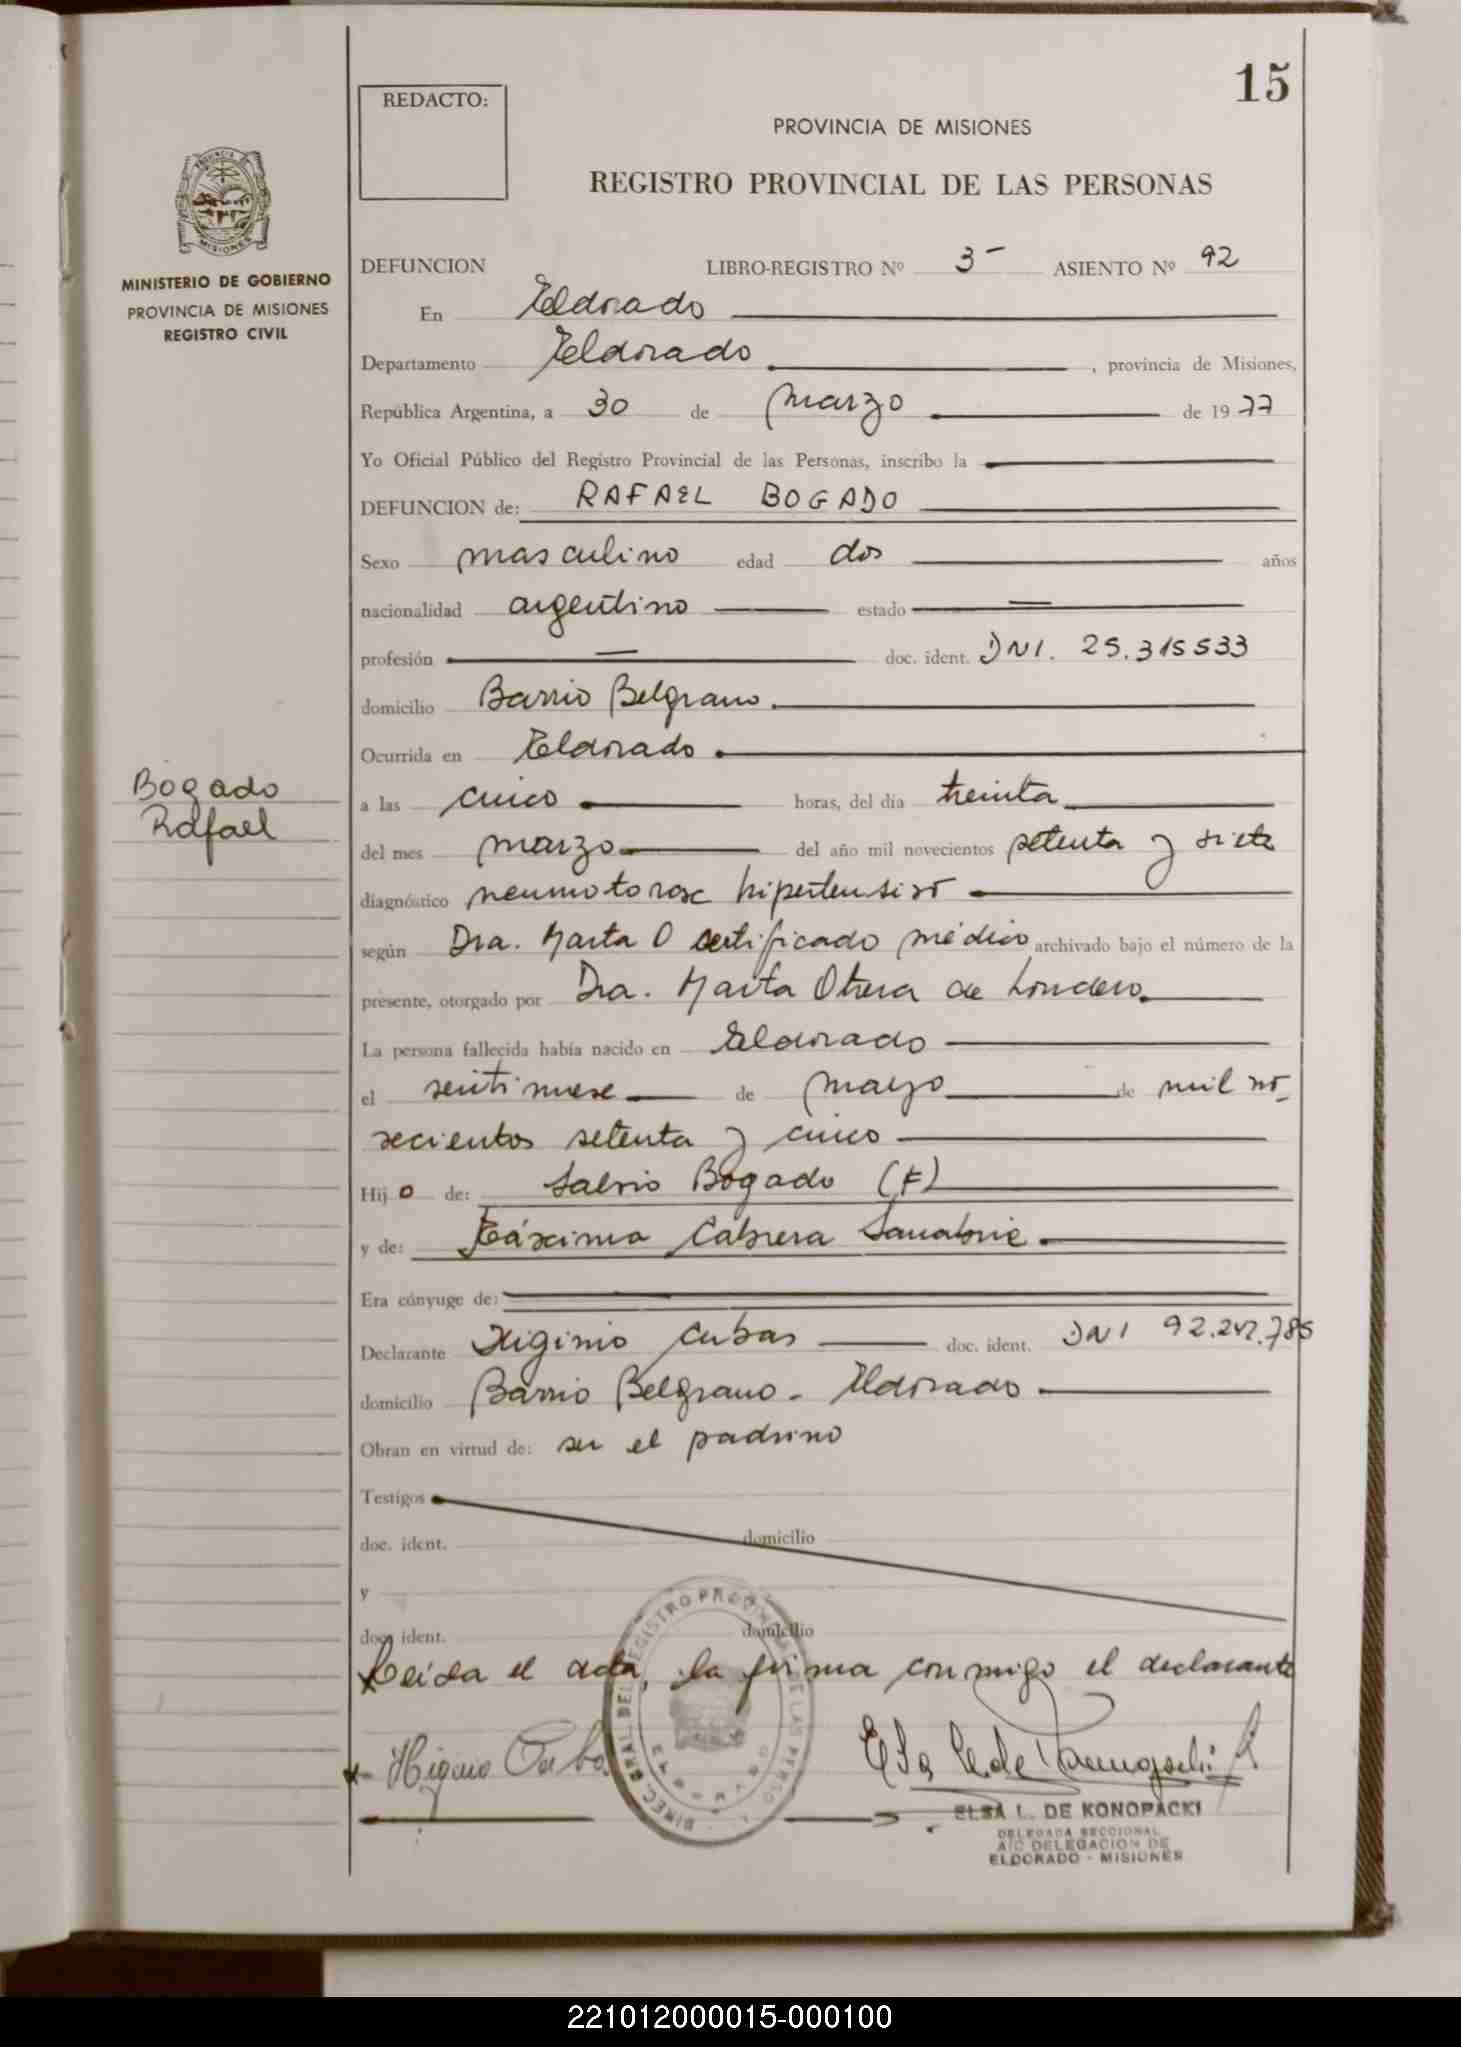 15
REDACTO:
PROVINCIA DE MISIONES
REGISTRO PROVINCIAL DE LAS PERSONAS
MINISTERIO DE GOBIERNO
PROVINCIA DE MISIONES
REGISTRO CIVIL
DEFUNCION LIBRO-REGISTRO Nº 3- ASIENTO Nº 92
En Eldorado
Departamento Eldorado, provincia de Misiones,
República Argentina, a 30 de marzo de 1977
Yo Oficial Público del Registro Provincial de las Personas, inscribo la
DEFUNCION de: RAFAEL BOGADO
Sexo masculino edad dos años
nacionalidad argentino estado —
profesión — doc. ident. DNI. 25.315533
domicilio Barrio Belgrano
Ocurrida en Eldorado
Bogado
Rafael
a las cinco horas, del día treinta
del mes marzo del año mil novecientos setenta y siete
diagnóstico neumotorax hipertensivo
según Dra. Marta O certificado médico archivado bajo el número de la
presente, otorgado por Dra. Marta Otera de Londero
La persona fallecida había nacido en Eldorado
el veintinueve de mayo de mil no_
vecientos setenta y cinco
Hijo de: Bogado (F)
y de: Máxima Cabrera Sanabria
Era cónyuge de:
Declarante Higinio Cubas doc. ident. DNI 92.242.785
domicilio Barrio Belgrano - Eldorado
Obran en virtud de: ser el padrino
Testigos
doc. ident. domicilio
y
doc. ident. domicilio
Leída el acta, la firma conmigo el declarante
Higinio Cubas
ELSA L. DE KONOPACKI
DELEGADA SECCIONAL
A/C DELEGACION DE
ELDORADO - MISIONES
221012000015-000100